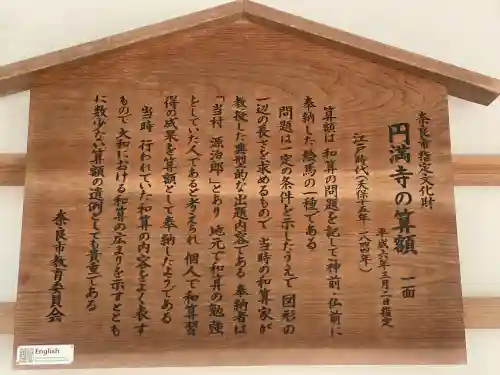 奈良市指定文化財
円満寺の算額 一面
平成六年三月二日指定
江戸時代(天保十五年 一八四四年)
算額は 和算の問題を記して神前・仏前に
奉納した絵馬の一種である
問題は一定の条件を示したうえで 図形の
一辺の長さを求めるもので 当時の和算家が
教授した典型的な出題内容である 奉納者は
「当村 源治郎」とあり 地元で和算の勉強
をしていた人であると考えられ 個人で和算習
得の成果を算額として奉納したようである
当時 行われていた和算の内容をよく表す
もので 大和における和算の広まりを示すととも
に数少ない算額の遺例としても貴重である
奈良市教育委員会
English